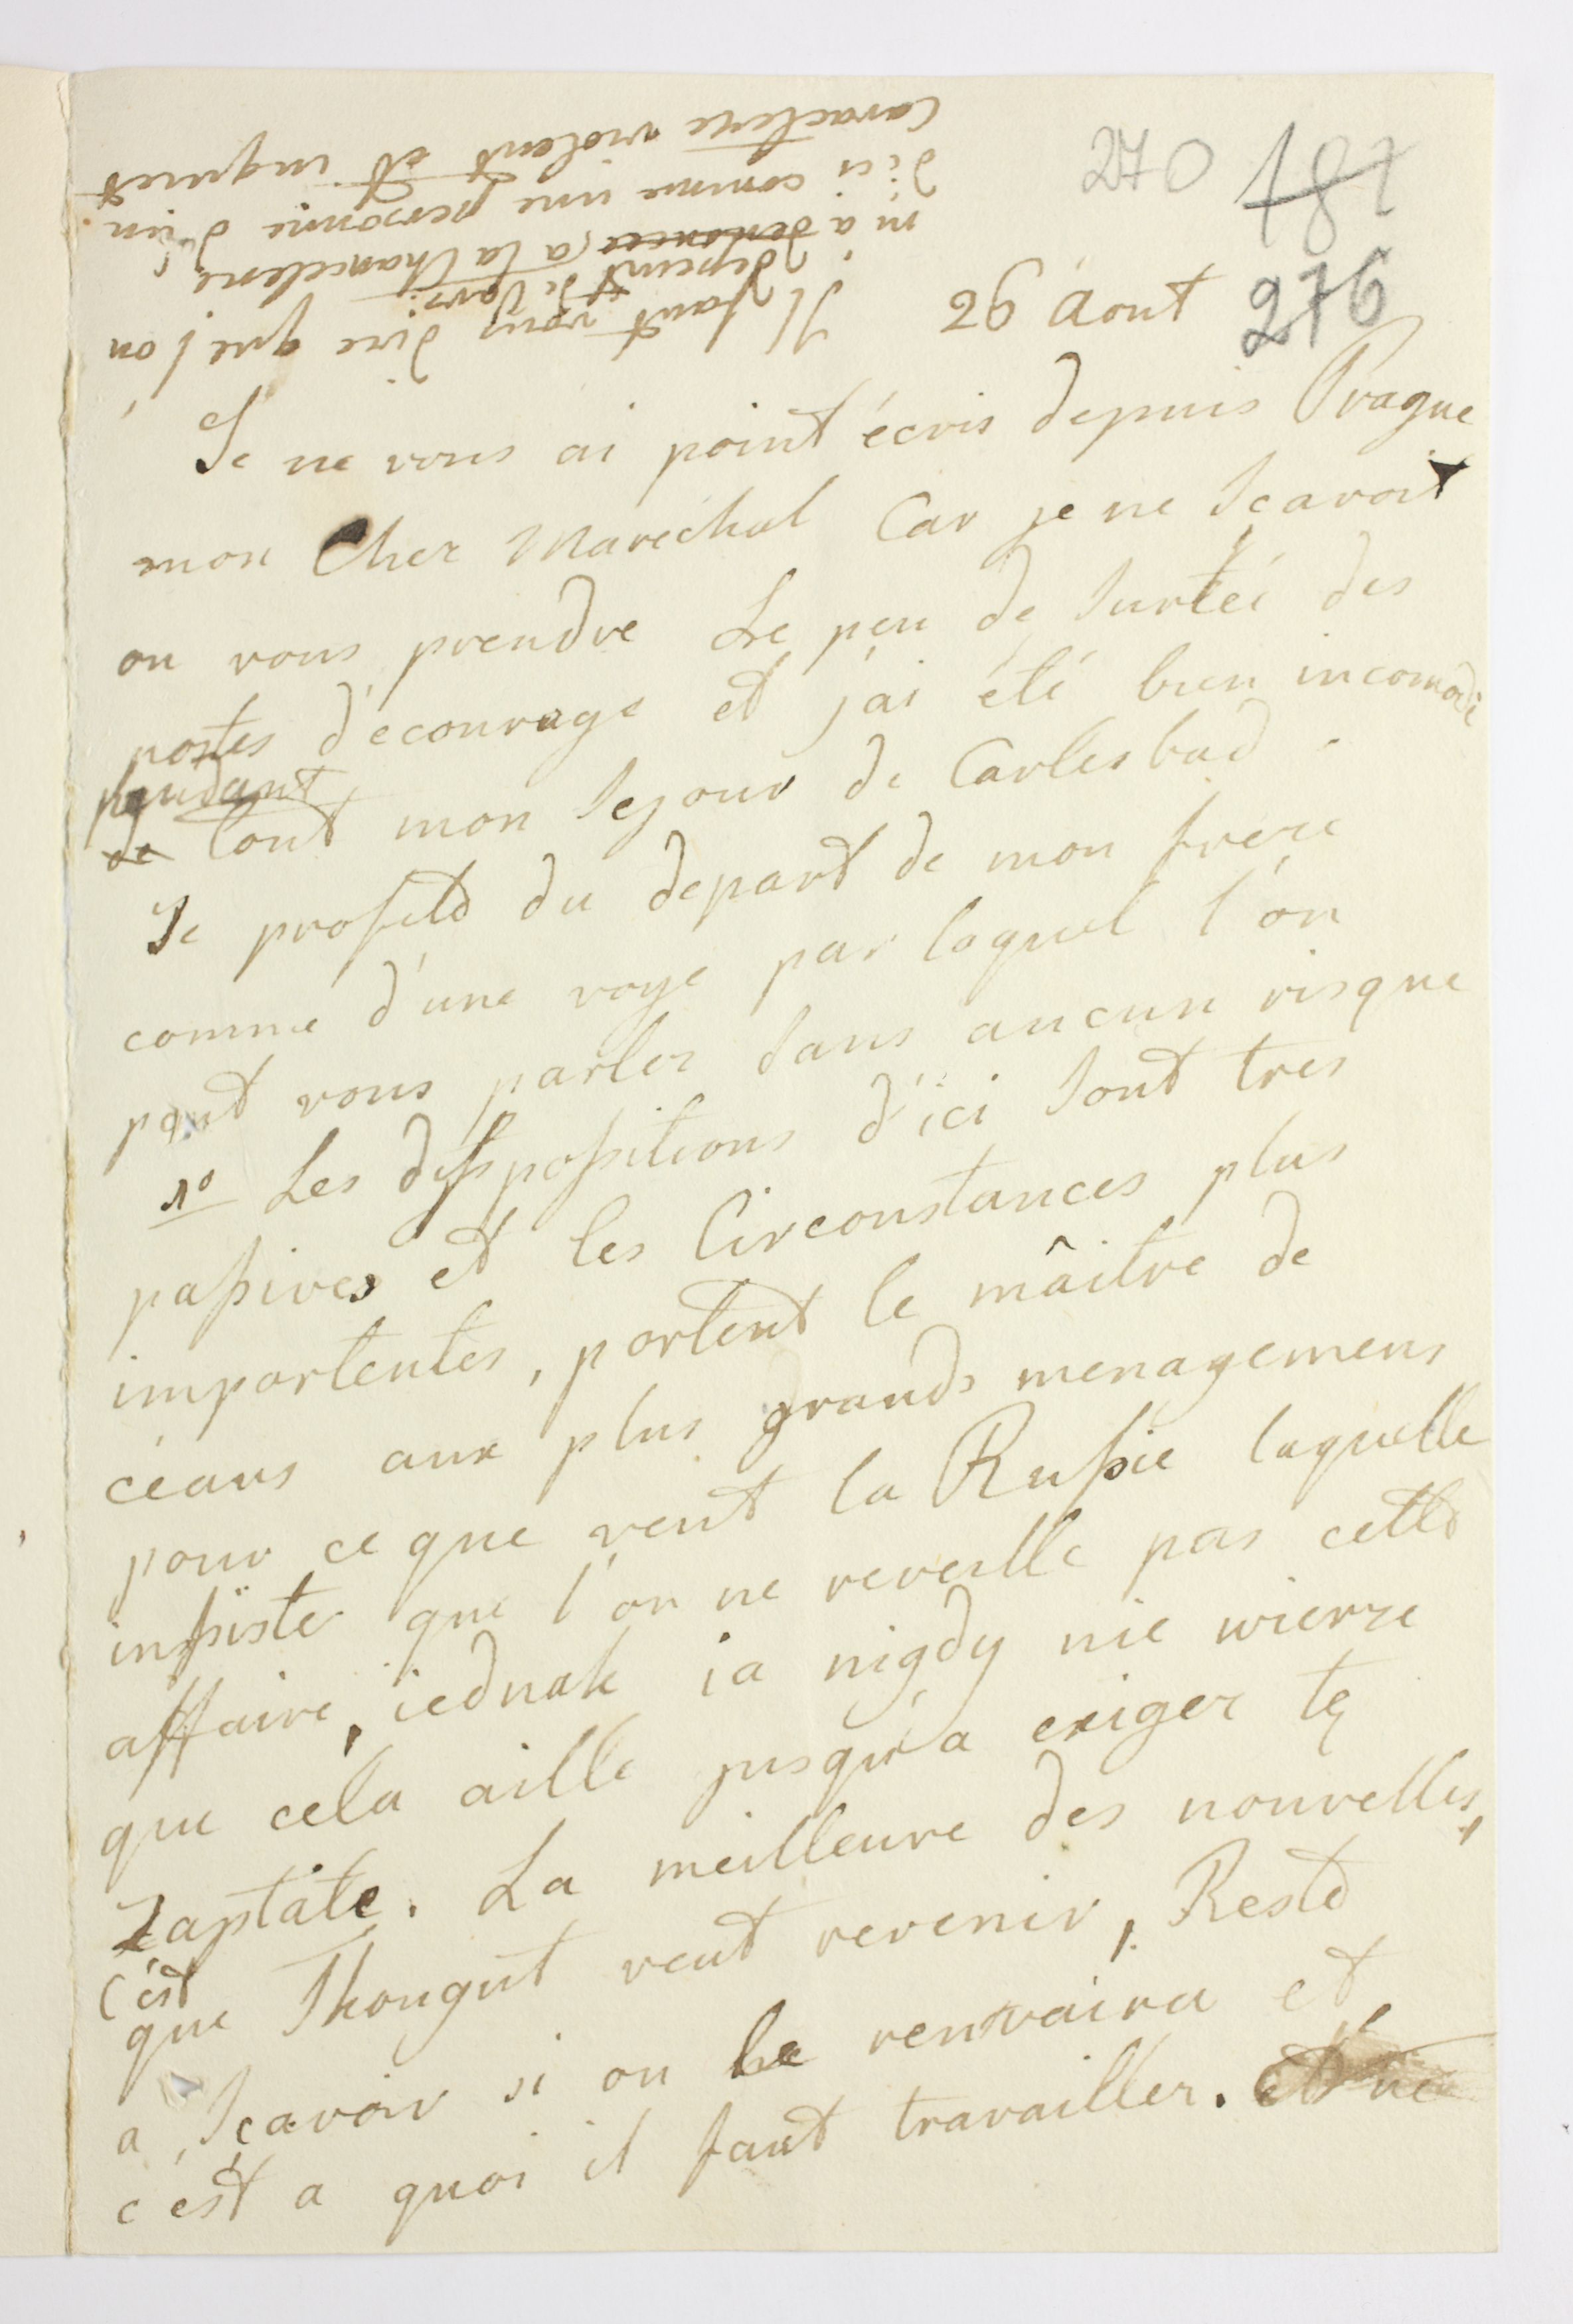 270 187
276
26 Aout
Je ne vous ai point écris depuis Prague
mon Cher Maréchal Car je ne Scavoit
ou vous prendre Le peu de Surteé des
postes d'ecourage et j'ai été bien incomodé
pendant
de tout mon Sejour de Carlesbad.
Je profite du depart de mon frere
comme d'une voye par laquel l'on
peut vous parler Sans aucun risque
1º Les disspositions d'ici Sont tres
passives et les Circonstances plus
importentes, portent le mâitre de
céans aux plus grands menagemens
pour ce que veut la Russie laquelle
insiste que l'on ne reveille pas cette
affaire, iednak ia nigdy nie wierze
que cela aille jusqu'a exiger tę
Zaptate. La meilleure des nouvelles,
c'est
que Thougut veut revenir, Reste
a Scavoir si on le renvaira et
c'est a quoi il faut travailler. et ne
Il faut vous dire que l'on
depeint de Vars:
m'a denoncé (a la Chancelerie
d'ici comme une personne d'un
Caractere violent et inquiet.